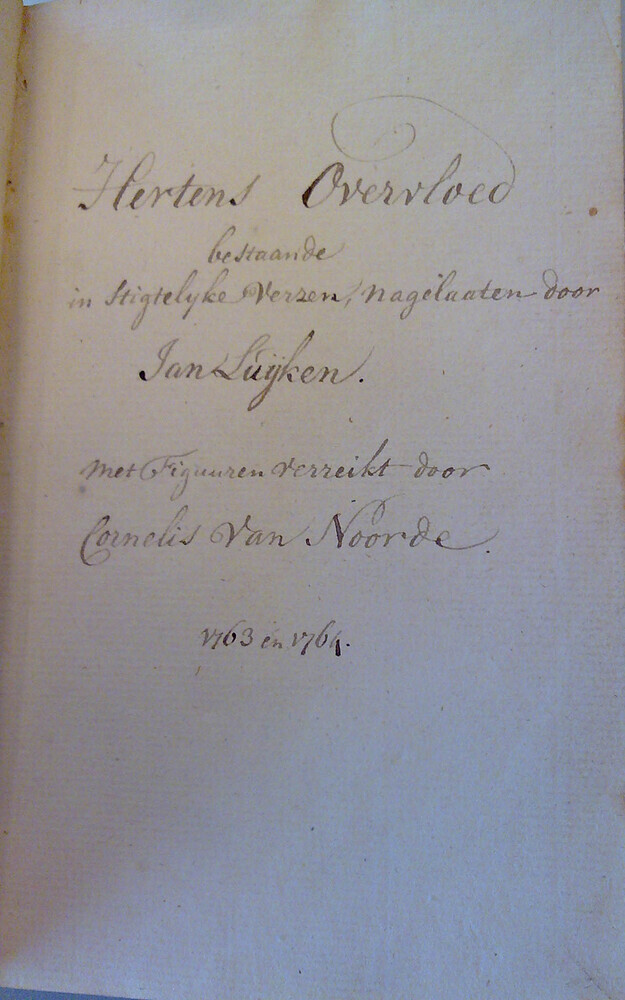 Hertens Overvloed
bestaande
in Stigtelyke Verzen, nagelaaten door
Jan Luijken.
Met Figuuren verreikt door
Cornelis Van Noorde.
1763 en 1764.